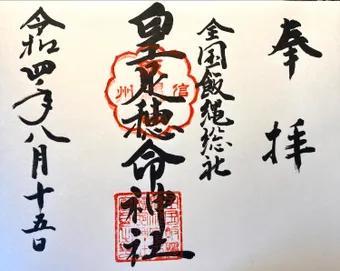 奉拝
全国飯縄総社
皇足穂命神社
信州
令和四年八月十五日